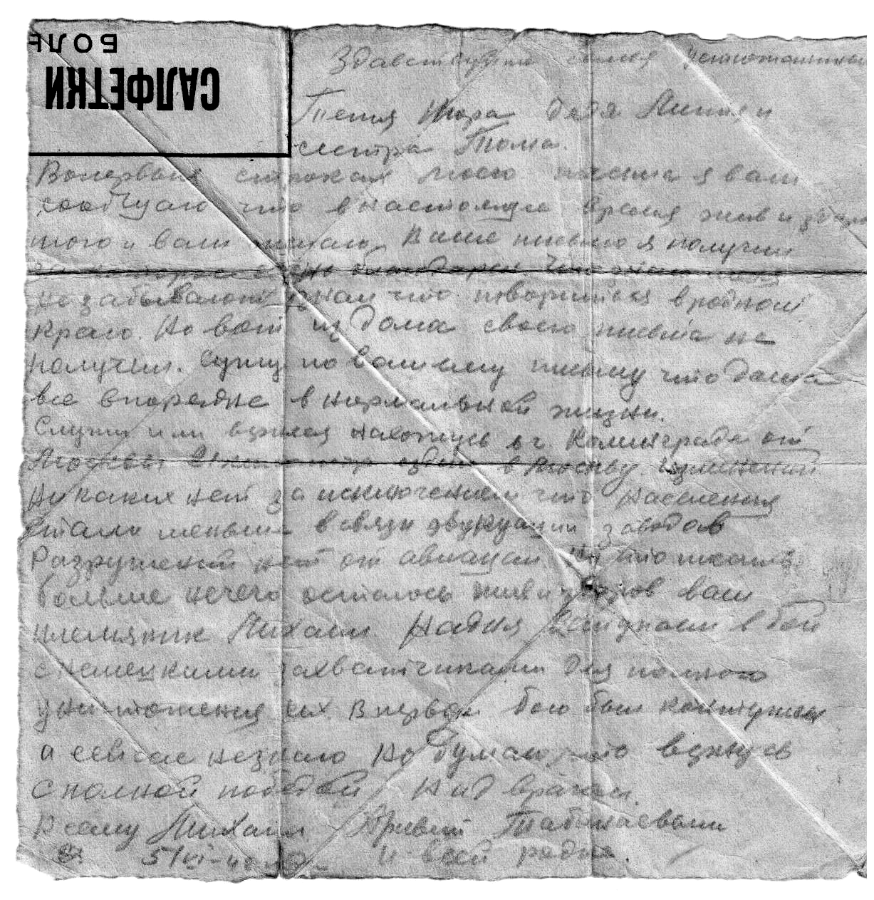 ВОЛЬ
САЛФЕТКИ
Здавствуйте семья
Тетя Нюра дядя Линя и
сестра Тома.
Вопервых строках моего письма я вам
сообщаю что в настоящее время жив и здоров
того и вам желаю. Ваше письмо я получил
за которое очень благодарен что
не забываете и знаю что творится в родном
краю. Но вот из дома своего письма не
получил. Сужу по вашему письму что дома
все впорядке в нормальной жизни.
Служу или нахожусь в г. Калинграде от
Москвы езжу в Москву. изменений
никаких нет за исключением что населения
стало меньше всвязи эвукуации заводов
Разрушений нет от авиации. писать
больше нечего осталось жив и здоров ваш
племянник Михаил Вступаем в бой
снемецкими захватчиками для полного
уничтожения их. В первом бою был контужен
а сейчас незнаю но думаю что вернусь
с полной победой над врагом.
К сему Михаил Привет
5/VI- и всей родне.